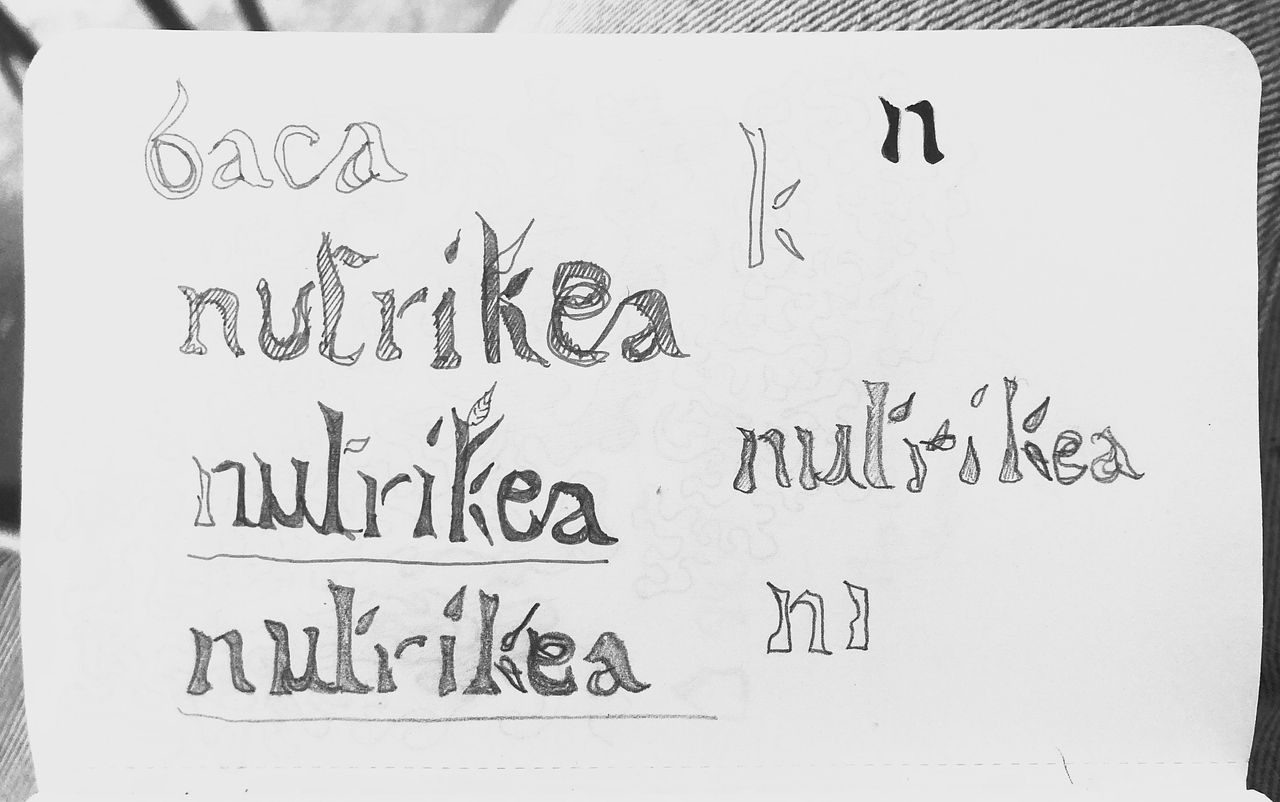 baca
k n
nutrikea
nutrikea
nutrikea
nutrikea
nı